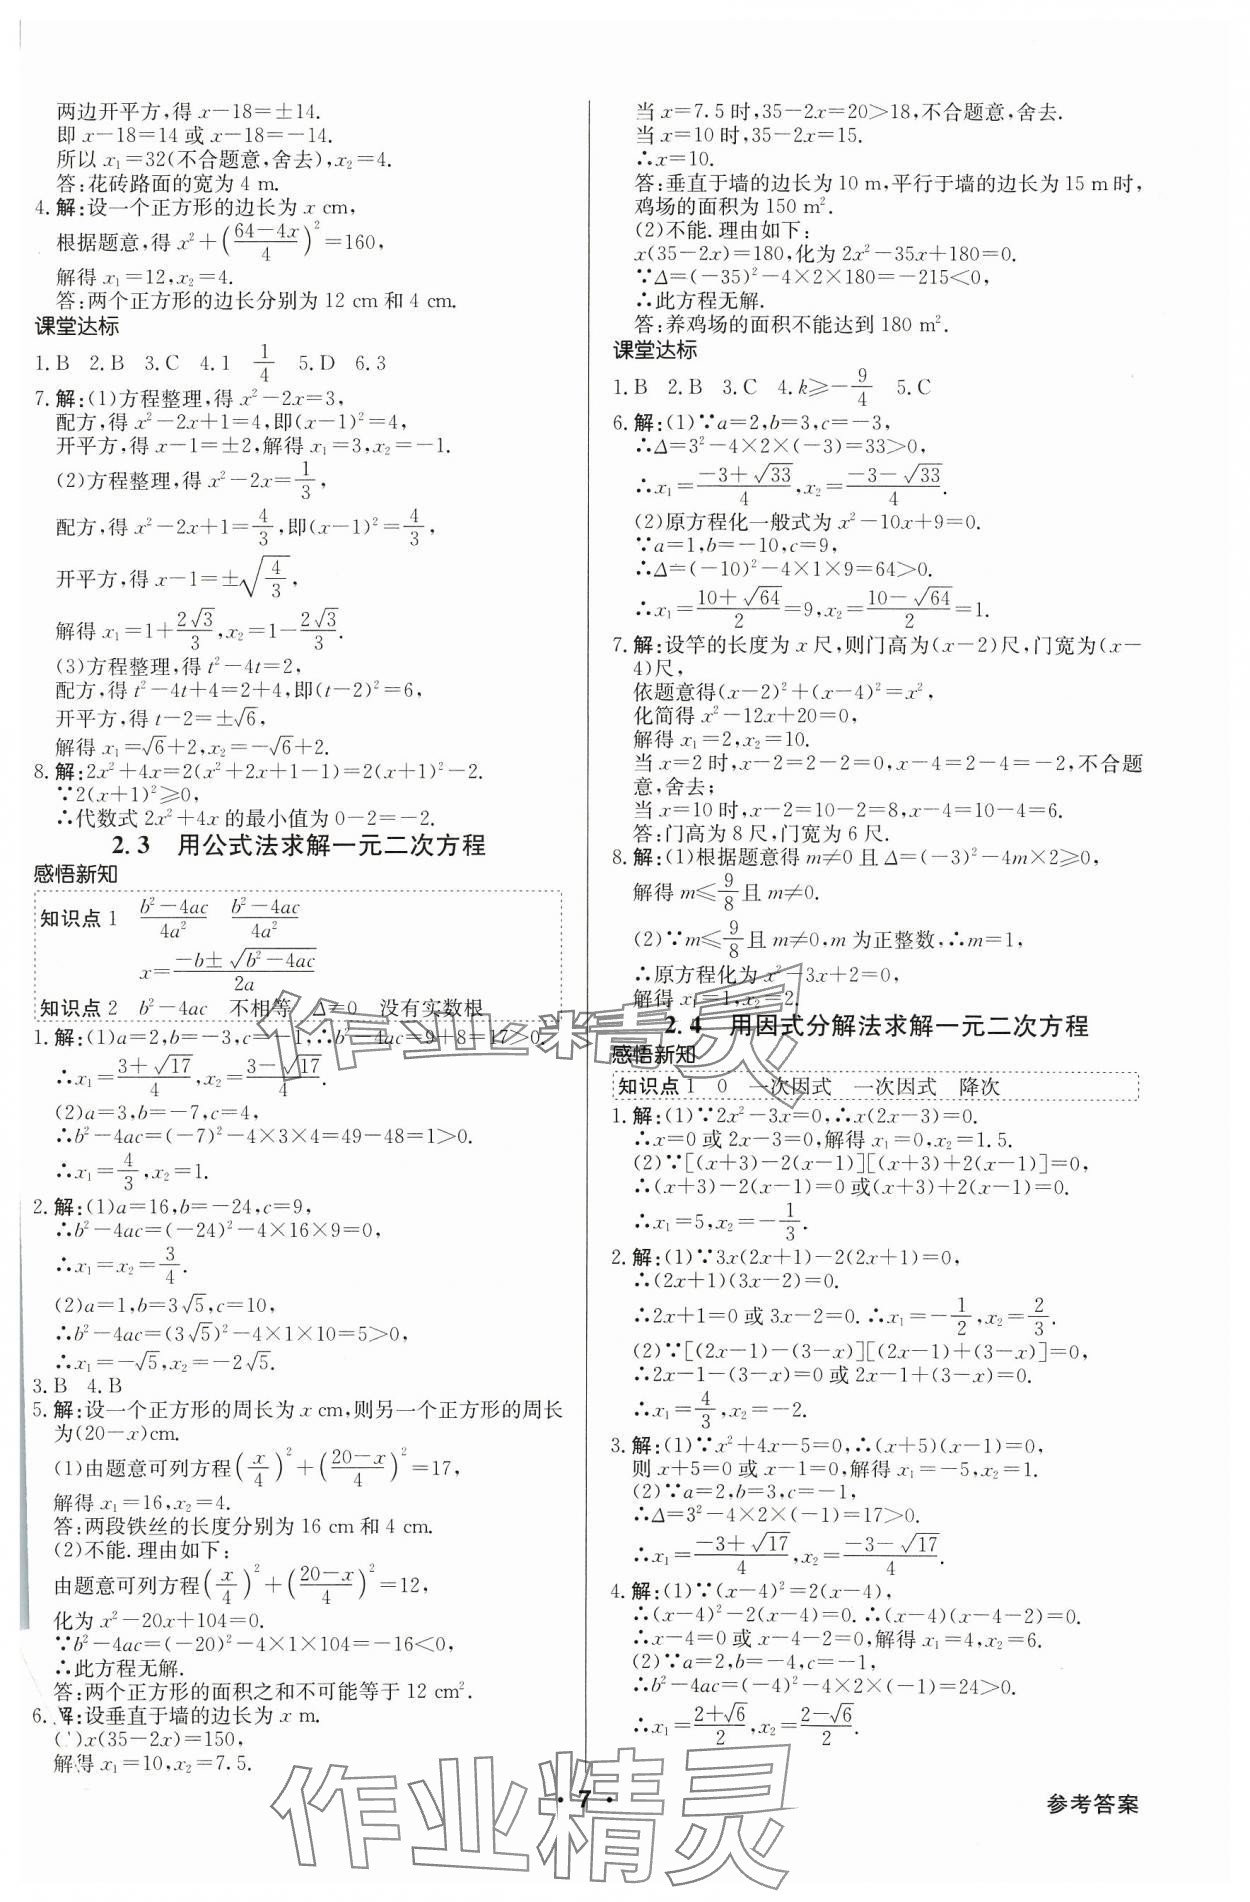 两边开平方,得 x-18=±14.
即 x-18=14 或 x-18=-14.
所以 x₁=32(不合题意,舍去),x₂=4.
答:花砖路面的宽为 4 m.
4. 解:设一个正方形的边长为 x cm,
根据题意,得 x²+((64-4x)/4)²=160,
解得 x₁=12,x₂=4.
答:两个正方形的边长分别为 12 cm 和 4 cm.
课堂达标
1. B 2. B 3. C 4. 1 1/4 5. D 6. 3
7. 解:(1)方程整理,得 x²-2x=3,
配方,得 x²-2x+1=4,即(x-1)²=4,
开平方,得 x-1=±2,解得 x₁=3,x₂=-1.
(2)方程整理,得 x²-2x=1/3,
配方,得 x²-2x+1=4/3,即(x-1)²=4/3,
开平方,得 x-1=±√(4/3),
解得 x₁=1+2√3/3,x₂=1-2√3/3.
(3)方程整理,得 t²-4t=2,
配方,得 t²-4t+4=2+4,即(t-2)²=6,
开平方,得 t-2=±√6,
解得 x₁=√6+2,x₂=-√6+2.
8. 解:2x²+4x=2(x²+2x+1-1)=2(x+1)²-2.
∵2(x+1)²≥0,
∴代数式 2x²+4x 的最小值为 0-2=-2.
2.3 用公式法求解一元二次方程
感悟新知
知识点 1 (b²-4ac)/4a² (b²-4ac)/4a²
x=(-b±√(b²-4ac))/2a
知识点 2 b²-4ac 不相等 Δ=0 没有实数根
1. 解:(1)a=2,b=-3,c=-1,∴b²-4ac=9+8=17>0.
∴x₁=(3+√17)/4,x₂=(3-√17)/4.
(2)a=3,b=-7,c=4,
∴b²-4ac=(-7)²-4×3×4=49-48=1>0.
∴x₁=4/3,x₂=1.
2. 解:(1)a=16,b=-24,c=9,
∴b²-4ac=(-24)²-4×16×9=0,
∴x₁=x₂=3/4.
(2)a=1,b=3√5,c=10,
∴b²-4ac=(3√5)²-4×1×10=5>0,
∴x₁=-√5,x₂=-2√5.
3. B 4. B
5. 解:设一个正方形的周长为 x cm,则另一个正方形的周长
为(20-x)cm.
(1)由题意可列方程(x/4)²+((20-x)/4)²=17,
解得 x₁=16,x₂=4.
答:两段铁丝的长度分别为 16 cm 和 4 cm.
(2)不能. 理由如下:
由题意可列方程(x/4)²+((20-x)/4)²=12,
化为 x²-20x+104=0.
∵b²-4ac=(-20)²-4×1×104=-16<0,
∴此方程无解.
答:两个正方形的面积之和不可能等于 12 cm².
6. 解:设垂直于墙的边长为 x m.
(1)x(35-2x)=150,
解得 x₁=10,x₂=7.5.
当 x=7.5 时,35-2x=20>18,不合题意,舍去.
当 x=10 时,35-2x=15.
∴x=10.
答:垂直于墙的边长为 10 m,平行于墙的边长为 15 m 时,
鸡场的面积为 150 m².
(2)不能. 理由如下:
x(35-2x)=180,化为 2x²-35x+180=0.
∵Δ=(-35)²-4×2×180=-215<0,
∴此方程无解.
答:养鸡场的面积不能达到 180 m².
课堂达标
1. B 2. B 3. C 4. k≥-9/4 5. C
6. 解:(1)∵a=2,b=3,c=-3,
∴Δ=3²-4×2×(-3)=33>0,
∴x₁=(-3+√33)/4,x₂=(-3-√33)/4.
(2)原方程化一般式为 x²-10x+9=0.
∵a=1,b=-10,c=9,
∴Δ=(-10)²-4×1×9=64>0.
∴x₁=(10+√64)/2=9,x₂=(10-√64)/2=1.
7. 解:设竿的长度为 x 尺,则门高为(x-2)尺,门宽为(x-
4)尺,
依题意得(x-2)²+(x-4)²=x²,
化简得 x²-12x+20=0,
解得 x₁=2,x₂=10.
当 x=2 时,x-2=2-2=0,x-4=2-4=-2,不合题
意,舍去;
当 x=10 时,x-2=10-2=8,x-4=10-4=6.
答:门高为 8 尺,门宽为 6 尺.
8. 解:(1)根据题意得 m≠0 且 Δ=(-3)²-4m×2≥0,
解得 m≤9/8且 m≠0.
(2)∵m≤9/8且 m≠0,m 为正整数,∴m=1,
∴原方程化为 x²-3x+2=0,
解得 x₁=1,x₂=2.
2.4 用因式分解法求解一元二次方程
感悟新知
知识点 1 0 一次因式 一次因式 降次
1. 解:(1)∵2x²-3x=0,∴x(2x-3)=0.
∴x=0 或 2x-3=0,解得 x₁=0,x₂=1.5.
(2)∵[(x+3)-2(x-1)][(x+3)+2(x-1)]=0,
∴(x+3)-2(x-1)=0 或(x+3)+2(x-1)=0.
∴x₁=5,x₂=-1/3.
2. 解:(1)∵3x(2x+1)-2(2x+1)=0.
∴(2x+1)(3x-2)=0.
∴2x+1=0 或 3x-2=0. ∴x₁=-1/2,x₂=2/3.
(2)∵[(2x-1)-(3-x)][(2x-1)+(3-x)]=0,
∴2x-1-(3-x)=0 或 2x-1+(3-x)=0.
∴x₁=4/3,x₂=-2.
3. 解:(1)∵x²+4x-5=0,∴(x+5)(x-1)=0,
则 x+5=0 或 x-1=0,解得 x₁=-5,x₂=1.
(2)∵a=2,b=3,c=-1,
∴Δ=3²-4×2×(-1)=17>0.
∴x₁=(-3+√17)/4,x₂=(-3-√17)/4.
4. 解:(1)∵(x-4)²=2(x-4),
∴(x-4)²-2(x-4)=0. ∴(x-4)(x-4-2)=0.
∴x-4=0 或 x-4-2=0,解得 x₁=4,x₂=6.
(2)∵a=2,b=-4,c=-1,
∴b²-4ac=(-4)²-4×2×(-1)=24>0.
∴x₁=(2+√6)/2,x₂=(2-√6)/2.
作业精灵
作业精灵
· 7 ·
参考答案